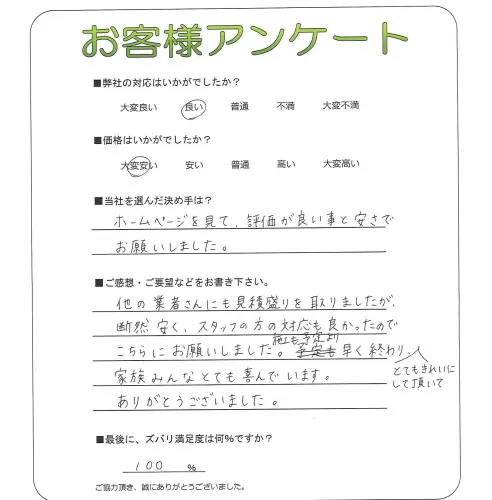 お客様アンケート
■弊社の対応はいかがでしたか？
大変良い 良い 普通 不満 大変不満
■価格はいかがでしたか？
大変安い 安い 普通 高い 大変高い
■当社を選んだ決め手は？
ホームページを見て、評価が良い事と安さで
お願いしました。
■ご感想・ご要望などをお書き下さい。
他の業者さんにも見積盛りを取りましたが、
断然安く、スタッフの方の対応も良かったので
こちらにお願いしました。施工も予定より早く終わり、
とてもきれいにして頂いて
家族みんなとても喜んでいます。
ありがとうございました。
■最後に、ズバリ満足度は何％ですか？
100 %
ご協力頂き、誠にありがとうございました。